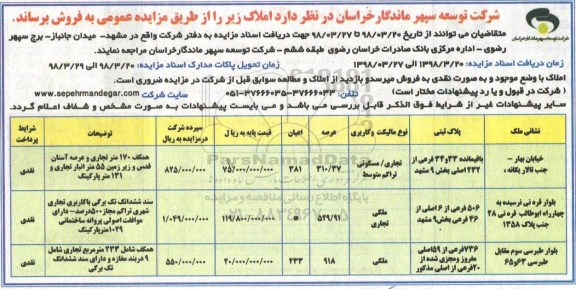 شرکت توسعه سپهر ماندگار خراسان در نظر دارد املاک زیر را از طریق مزایده عمومی به فروش برساند.
متقاضیان می توانند از تاریخ ۹۸/۰۳/۲۰ تا ۹۸/۰۳/۲۷ جهت دریافت اسناد مزایده به دفتر شرکت واقع در مشهد- میدان جانباز- برج سپهر
رضوی - اداره مرکزی بانک صادرات خراسان رضوی طبقه ششم - شرکت توسعه سپهر ماندگار خراسان مراجعه نمایند.
زمان دریافت اسناد مزایده: ۱۳۹۸/۳/۲۰ الی ۱۳۹۸/۰۳/۲۷ زمان تحویل پاکات مدارک اسناد مزایده: ۹۸/۳/۲۰ الی ۹۸/۳/۲۹
املاک با وضع موجود و به صورت نقدی به فروش میرسد و بازدید از املاک و مطالعه سوابق قبل از شرکت در مزایده ضروری است.
(شرکت در قبول و یا رد پیشنهادات مختار است) تلفن: ۳۷۶۶۶۰۳۳-۳۷۶۶۶۰۳۵-۰۵۱ سایت شرکت www.sepehrmandegar.com
سایر پیشنهادات غیر از شرایط فوق الذکر قابل بررسی می باشد و می بایست پیشنهادات به صورت مشخص و شفاف اعلام گردد.
نشانی ملک پلاک ثبتی نوع مالکیت و کاربری عرصه اعیان قیمت پایه به ریال سپرده شرکت در مزایده به ریال توضیحات شرایط پرداخت
خیابان بهار - جنب تالار یگانه باقیمانده ۳۳و۳۴ فرعی از ۲۳۲ اصلی بخش ۹ مشهد تجاری/ مسکونی تراکم متوسط ۳۱۰/۳۷ ۳۸۱ ۷۵/۰۰۰/۰۰۰/۰۰۰ ۸۲۵/۰۰۰/۰۰۰ همکف ۱۷۰ متر تجاری و عرصه آستان قدس و زیر زمین ۵۵ متر انبار تجاری و ۱۳۱ متر پارکینگ نقدی
بلوار قره نی نرسیده به چهارراه ابوطالب قره نی ۲۸ جنب پلاک ۱۳۵۸ ۵۰۶ فرعی از ۶ اصلی از ۴۶ فرعی بخش ۹ مشهد ملکی تجاری ۵۲۹/۹۱ ۰ ۱۱۹/۸۰۰/۰۰۰/۰۰۰ ۱/۰۴۹/۰۰۰/۰۰۰ سند ششدانگ تک برگی با کاربری تجاری شهری تراکم مجاز ۵۰۰درصد- دارای موافقت اصولی پروانه ساختمانی ۱۰۲۹متر پارکینگ نقدی
بلوار طبرسی سوم مقابل طبرسی ۶۳و۶۵ ۷۳۶فرعی از ۵۹اصلی مفروز و مجزی شده از ۲۰فرعی از اصلی مذکور ملکی ۹۱۸ ۲۳۳ ۲۰/۰۰۰/۰۰۰/۰۰۰ ۵۵۰/۰۰۰/۰۰۰ همکف شامل ۲۳۳ مترمربع تجاری شامل ۹ دربند مغازه و دارای سند ششدانگ تک برگی نقدی